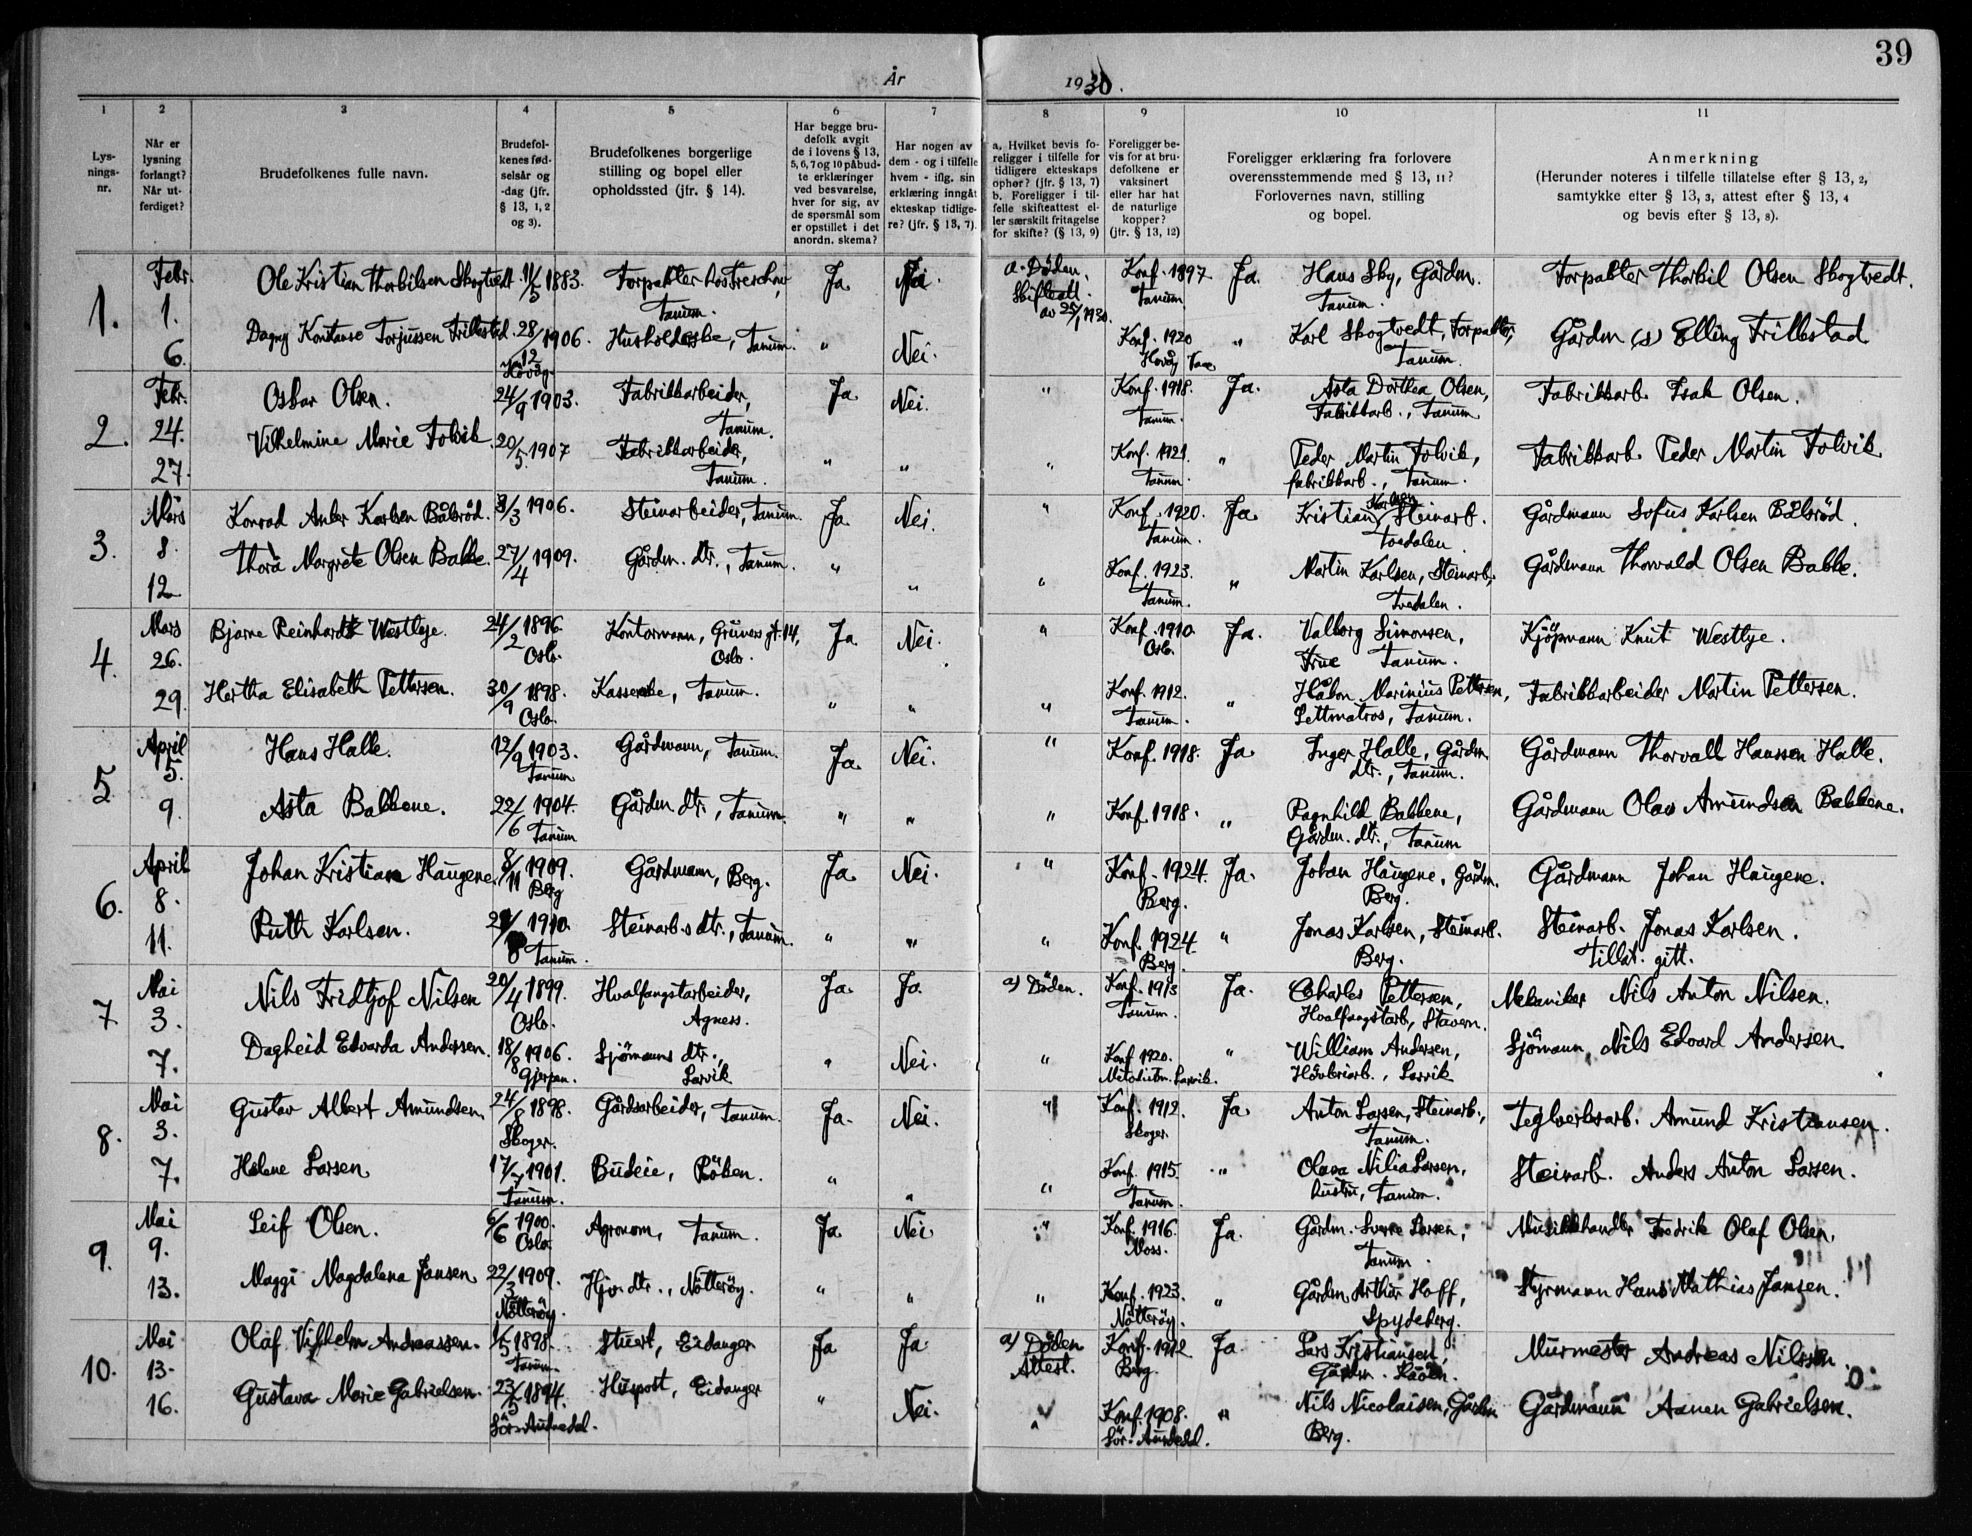 39
År 1930.
1
2
3
4
5
6
7
8
9
10
11
Lys-
nings-
nr.
Når er
lysning
forlangt?
Når ut-
ferdiget?
Brudefolkenes fulle navn.
Brudefol-
kenes fød-
selsår og
-dag (jfr.
§ 13, 1, 2
og 3).
Brudefolkenes borgerlige
stilling og bopel eller
opholdssted (jfr. § 14).
Har begge bru-
defolk avgit
de i lovens § 13,
5, 6, 7 og 10 påbud-
te erklæringer
ved besvarelse,
hver for sig, av
de spørsmål som
er opstillet i det
anordn. skema?
Har nogen av
dem - og i tilfelle
hvem - iflg. sin
erklæring inngåt
ekteskap tidlige-
re? (jfr. § 13, 7).
a. Hvilket bevis fo-
religger i tilfelle for
tidligere ekteskaps
ophør? (jfr. § 13, 7)
b. Foreligger i til-
felle skifteattest el-
ler særskilt fritagelse
for skifte? (§ 13, 9)
Foreligger be-
vis for at bru-
defolkene er
vaksinert
eller har hat
de naturlige
kopper?
(jfr. § 13, 12)
Foreligger erklæring fra forlovere
overensstemmende med § 13, 11?
Forlovernes navn, stilling
og bopel.
Anmerkning
(Herunder noteres i tilfelle tillatelse efter § 13, 2,
samtykke efter § 13, 3, attest efter § 13, 4
og bevis efter § 13, 8).
1. Febr. 1. 6.
Ole Kristian Thorkilsen Skogtvedt. 11/5 1883. Forpakter hos Treschow, Tanum. Ja Ja a. Døden. Skifteatt. av 25/1 1930. Konf. 1897 Tanum Ja. Hans Sky, Gårdm. Tanum. Forpakter Thorkil Olsen Skogtvedt.
Dagny Konstanse Torjussen Trillestad. 28/12 1906. Høvåg. Husholderske, Tanum. " Nei. Konf. 1920 Høvåg " Karl Skogtvedt, Forpakter, Tanum. Gårdm (s) Elling Trillestad
2. Febr. 24. 27.
Oskar Olsen. 24/9 1903. Fabrikkarbeider, Tanum. Ja Nei. " Konf. 1918. Tanum. Ja. Asta Dorthea Olsen, Fabrikkarb., Tanum Fabrikkarb. Isak Olsen.
Vilhelmine Marie Tolvik. 20/5 1907 Fabrikkarbeider, Tanum. " " " Konf. 1921. Tanum. " Peder Martin Tolvik, fabrikkarb., Tanum. Fabrikkarb. Peder Martin Tolvik
3. Mars 8. 12
Konrad Anker Karlsen Bålsrød. 3/3 1906. Steinarbeider, Tanum. Ja Nei. " Konf. 1920. Tanum. Ja Kristian Karlsen Steinarb. Tvedalen. Gårdmann Sofus Karlsen Bålsrød.
Thora Margrete Olsen Bakke. 27/4 1909. Gårdm. dtr., Tanum. " " " Konf. 1923. Tanum. " Martin Karlsen, Steinarb., Tvedalen. Gårdmann Thorvald Olsen Bakke.
4. Mars 26. 29.
Bjarne Reinhardt Westlye. 24/2 1896. Oslo. Kontormann, Grüners gt. 14, Oslo. Ja Nei. " Konf. 1910. Oslo. Ja. Valborg Simonsen, Frue Tanum. Kjøpmann Knut Westlye.
Hertha Elisabeth Pettersen. 30/9 1898. Oslo. Kasserske, Tanum. " " " Konf. 1912. Tanum. " Håkon Marinius Pettersen, Lettmatros, Tanum. Fabrikkarbeider Martin Pettersen.
5 April 5. 9.
Hans Halle. 12/9 1903. Tanum Gårdmann, Tanum. Ja Nei. " Konf. 1918. Ja Inger Halle, Gårdm dtr., Tanum. Gårdmann Thorvall Hanssen Halle.
Asta Bakkene. 22/6 1904. Tanum Gårdm. dtr., Tanum. " " " Konf. 1918. " Ragnhild Bakkene, Gårdm. dtr., Tanum Gårdmann Olav Amundsen Bakkene.
6. April 8. 11.
Johan Kristian Haugene. 8/11 1909. Berg Gårdmann, Berg. Ja Nei. " Konf. 1924. Berg. Ja. Johan Haugene, Gårdm. Berg. Gårdmann Johan Haugene.
Ruth Karlsen. 1910. Tanum. Steinarb.s dtr., Tanum. " " " Konf. 1924 Berg. " Jonas Karlsen, Steinarb. Berg. Steinarb. Jonas Karlsen. Tillat. gitt.
7 Mai 3. 7.
Nils Fridtjof Nilsen 20/4 1899. Oslo. Hvalfangstarbeider, Agness. Ja Ja a) Døden. Konf. 1913 Tanum. Ja. Charles Pettersen, Hvalfangstarb., Stavern. Mekaniker Nils Anton Nilsen.
Dagheid Edvarda Andersen. 18/8 1906. Gjerpen. Sjømanns dtr., Larvik " Nei. " Konf 1920. Metodistm. Larvik. " William Andersen, Høvleriarb., Larvik Sjømann, Nils Edvard Andersen
8. Mai 3. 7.
Gustav Albert Amundsen. 24/8 1898. Skoger. Gårdsarbeider, Tanum. Ja. Nei. " Konf. 1912. Skoger Ja Anton Larsen, Steinarb., Tanum. Teglverksarb. Amund Kristiansen.
Helene Larsen 17/7 1901. Tanum. Budeie, Røken. " " " Konf. 1915. Tanum. " Olava Nilia Larsen, hustru, Tanum. Steinarb. Anders Anton Larsen.
9. Mai 9. 13.
Leif Olsen. 6/6 1900. Oslo. Agronom, Tanum. Ja Nei " Konf. 1916 Moss. Ja. Gårdm. Sverre Larsen, Tanum. Musikkhandler Fredrik Olaf Olsen.
Maggi Magdalena Jansen 22/3 1909. Nøtterøy. Hjv. dtr., Nøtterøy. " " " Konf. 1923. Nøtterøy. " Gårdm. Arthur Hoff, Spydeberg. Styrmann Hans Mathias Jansen.
10. Mai 13. 16.
Olaf Vilhelm Andreassen. 1/5 1898. Tanum. Stuert, Eidanger Ja Ja a) Døden Attest. Konf. 1912 Berg. Ja Lars Kristiansen, Gårdm. Murmester Andreas Nilssen.
Gustava Marie Gabrielsen. 23/5 1894. Sør-Audnedal. Huspost, Eidanger " Nei. " Konf. 1908. Sør-Audnedal. " Nils Nicolaisen, Gårdm Berg. Gårdmann Aanen Gabrielsen.